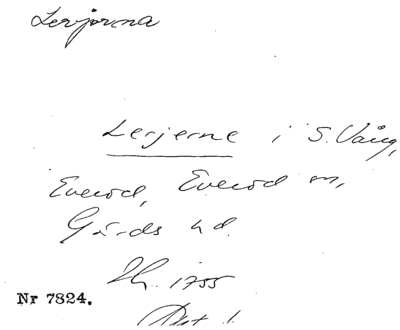 Lerjorna
Lerjerne i S. Vång,
Everöd, Everöd sn,
Gärds hd.
Sk. 1755
Nr 7824.
Akt 1.